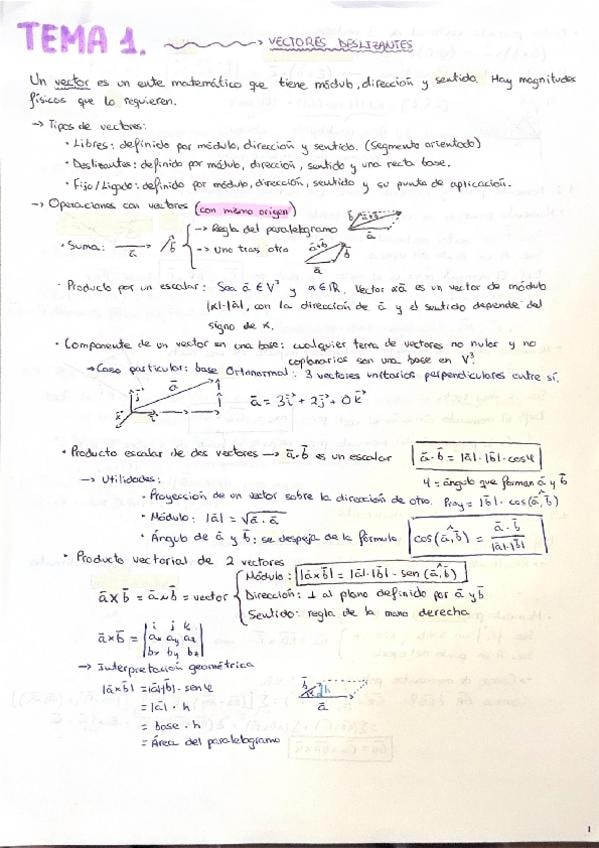 TEMA 1. → VECTORES DESLIZANTES
Un vector es un ente matemático que tiene módulo, dirección y sentido. Hay magnitudes
físicas que lo requieren.
→ Tipos de vectores:
· Libres: definido por módulo, dirección y sentido. (Segmento orientado)
· Deslizantes: definido por módulo, dirección, sentido y una recta base.
· Fijo/Ligado: definido por módulo, dirección, sentido y su punto de aplicación.
→ Operaciones con vectores (con mismo origen)
→ Regla del paralelogramo
· Suma: ā b̄
→ Uno tras otro
· Producto por un escalar: Sea ā ∈ V³ y α ∈ ℝ. Vector αā es un vector de módulo
|α|·|ā|, con la dirección de ā y el sentido depende del
signo de α.
· Componente de un vector en una base: cualquier terna de vectores no nulos y no
coplanarios son una base en V³
→ Caso particular: base Ortonormal: 3 vectores unitarios perpendiculares entre sí.
ā = 3i⃗ + 2j⃗ + 0k⃗
· Producto escalar de dos vectores → ā·b̄ es un escalar ā·b̄ = |ā|·|b̄|·cosφ
→ Utilidades: φ = ángulo que forman ā y b̄
· Proyección de un vector sobre la dirección de otro. Proy = |b̄|·cos(ā,b̄)
· Módulo: |ā| = √ā·ā
· Ángulo de ā y b̄: se despeja de la fórmula cos(ā,b̄) = ā·b̄ / |ā|·|b̄|
· Producto vectorial de 2 vectores
Módulo: |ā×b̄| = |ā|·|b̄|·sen(ā,b̄)
ā×b̄ = ā∧b̄ = vector Dirección: ⊥ al plano definido por ā y b̄
Sentido: regla de la mano derecha
ā×b̄ = | i j k
ax ay az
bx by bz |
→ Interpretación geométrica
|ā×b̄| = |ā|·|b̄|·senφ
= |ā|·h
= base·h
= Área del paralelogramo
b̄ h
ā
1